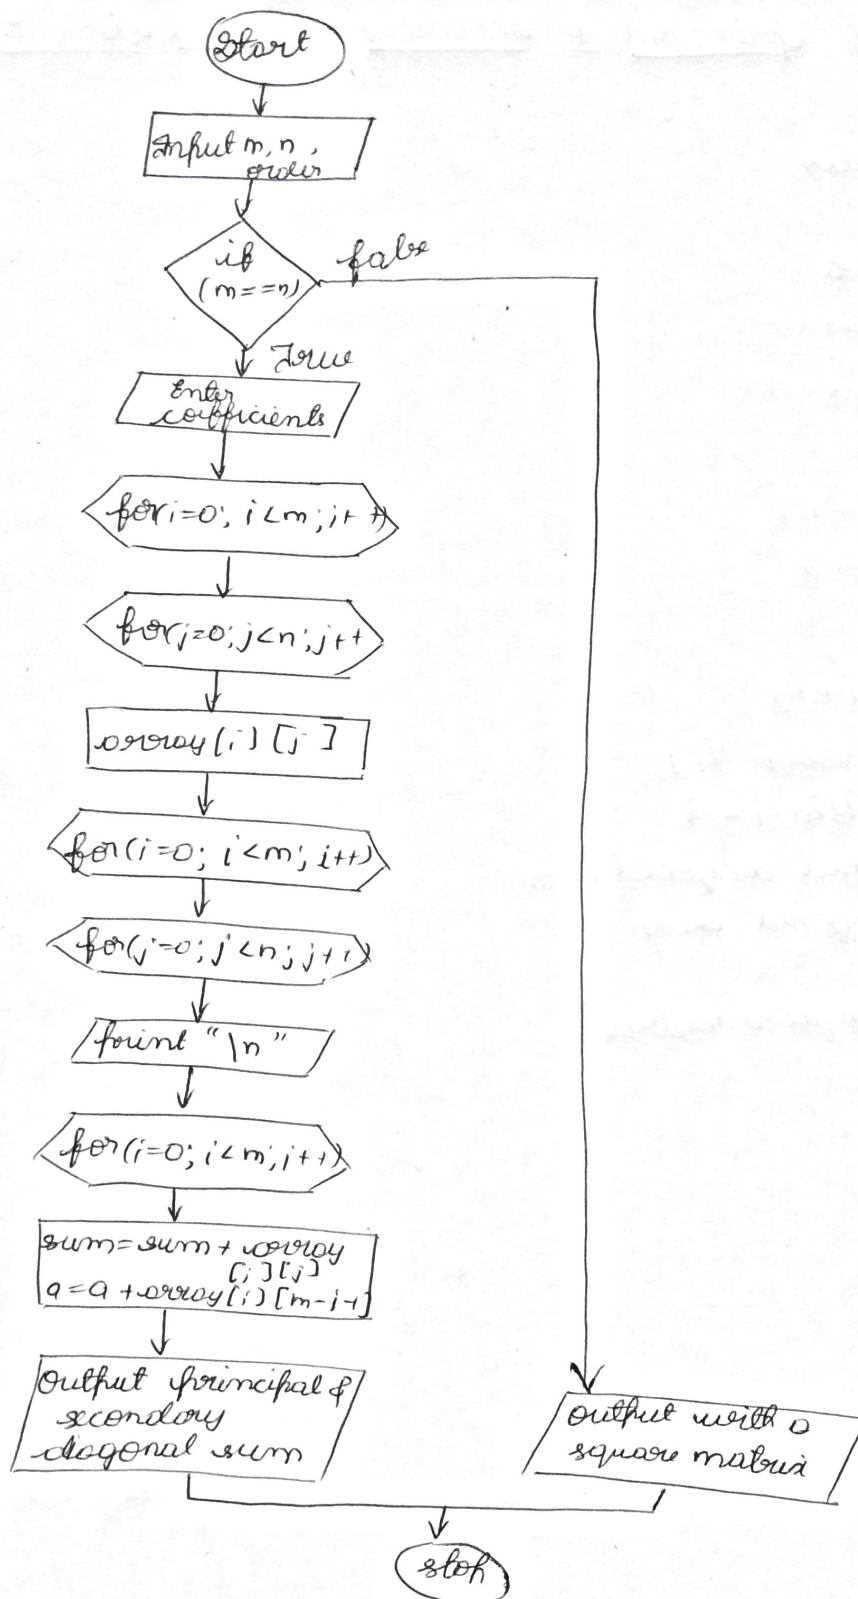 Start
Input m, n,
order
if
(m==n)
false
True
Enter
coefficients
for i=0; i<m; i++)
for j=0; j<n; j++
array[i][j]
for(i=0; i<m; i++)
for(j=0; j<n; j++)
print "\n"
for(i=0; i<m; i++)
sum=sum+array
[i][j]
a=a+array[i][m-i-1]
output principal &
secondary
diagonal sum
output with a
square matrix
stop